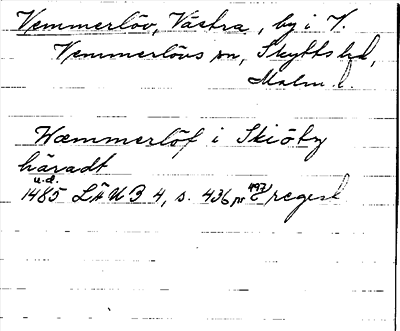 Vemmerlöv, Västra, by i V.
Vemmerlövs sn, Skytts hd,
Malm. l.
Wæmmerlöf i Skiötz
häradt
u.d.
1485 LÄUB 4, s. 436 nr 497 regest